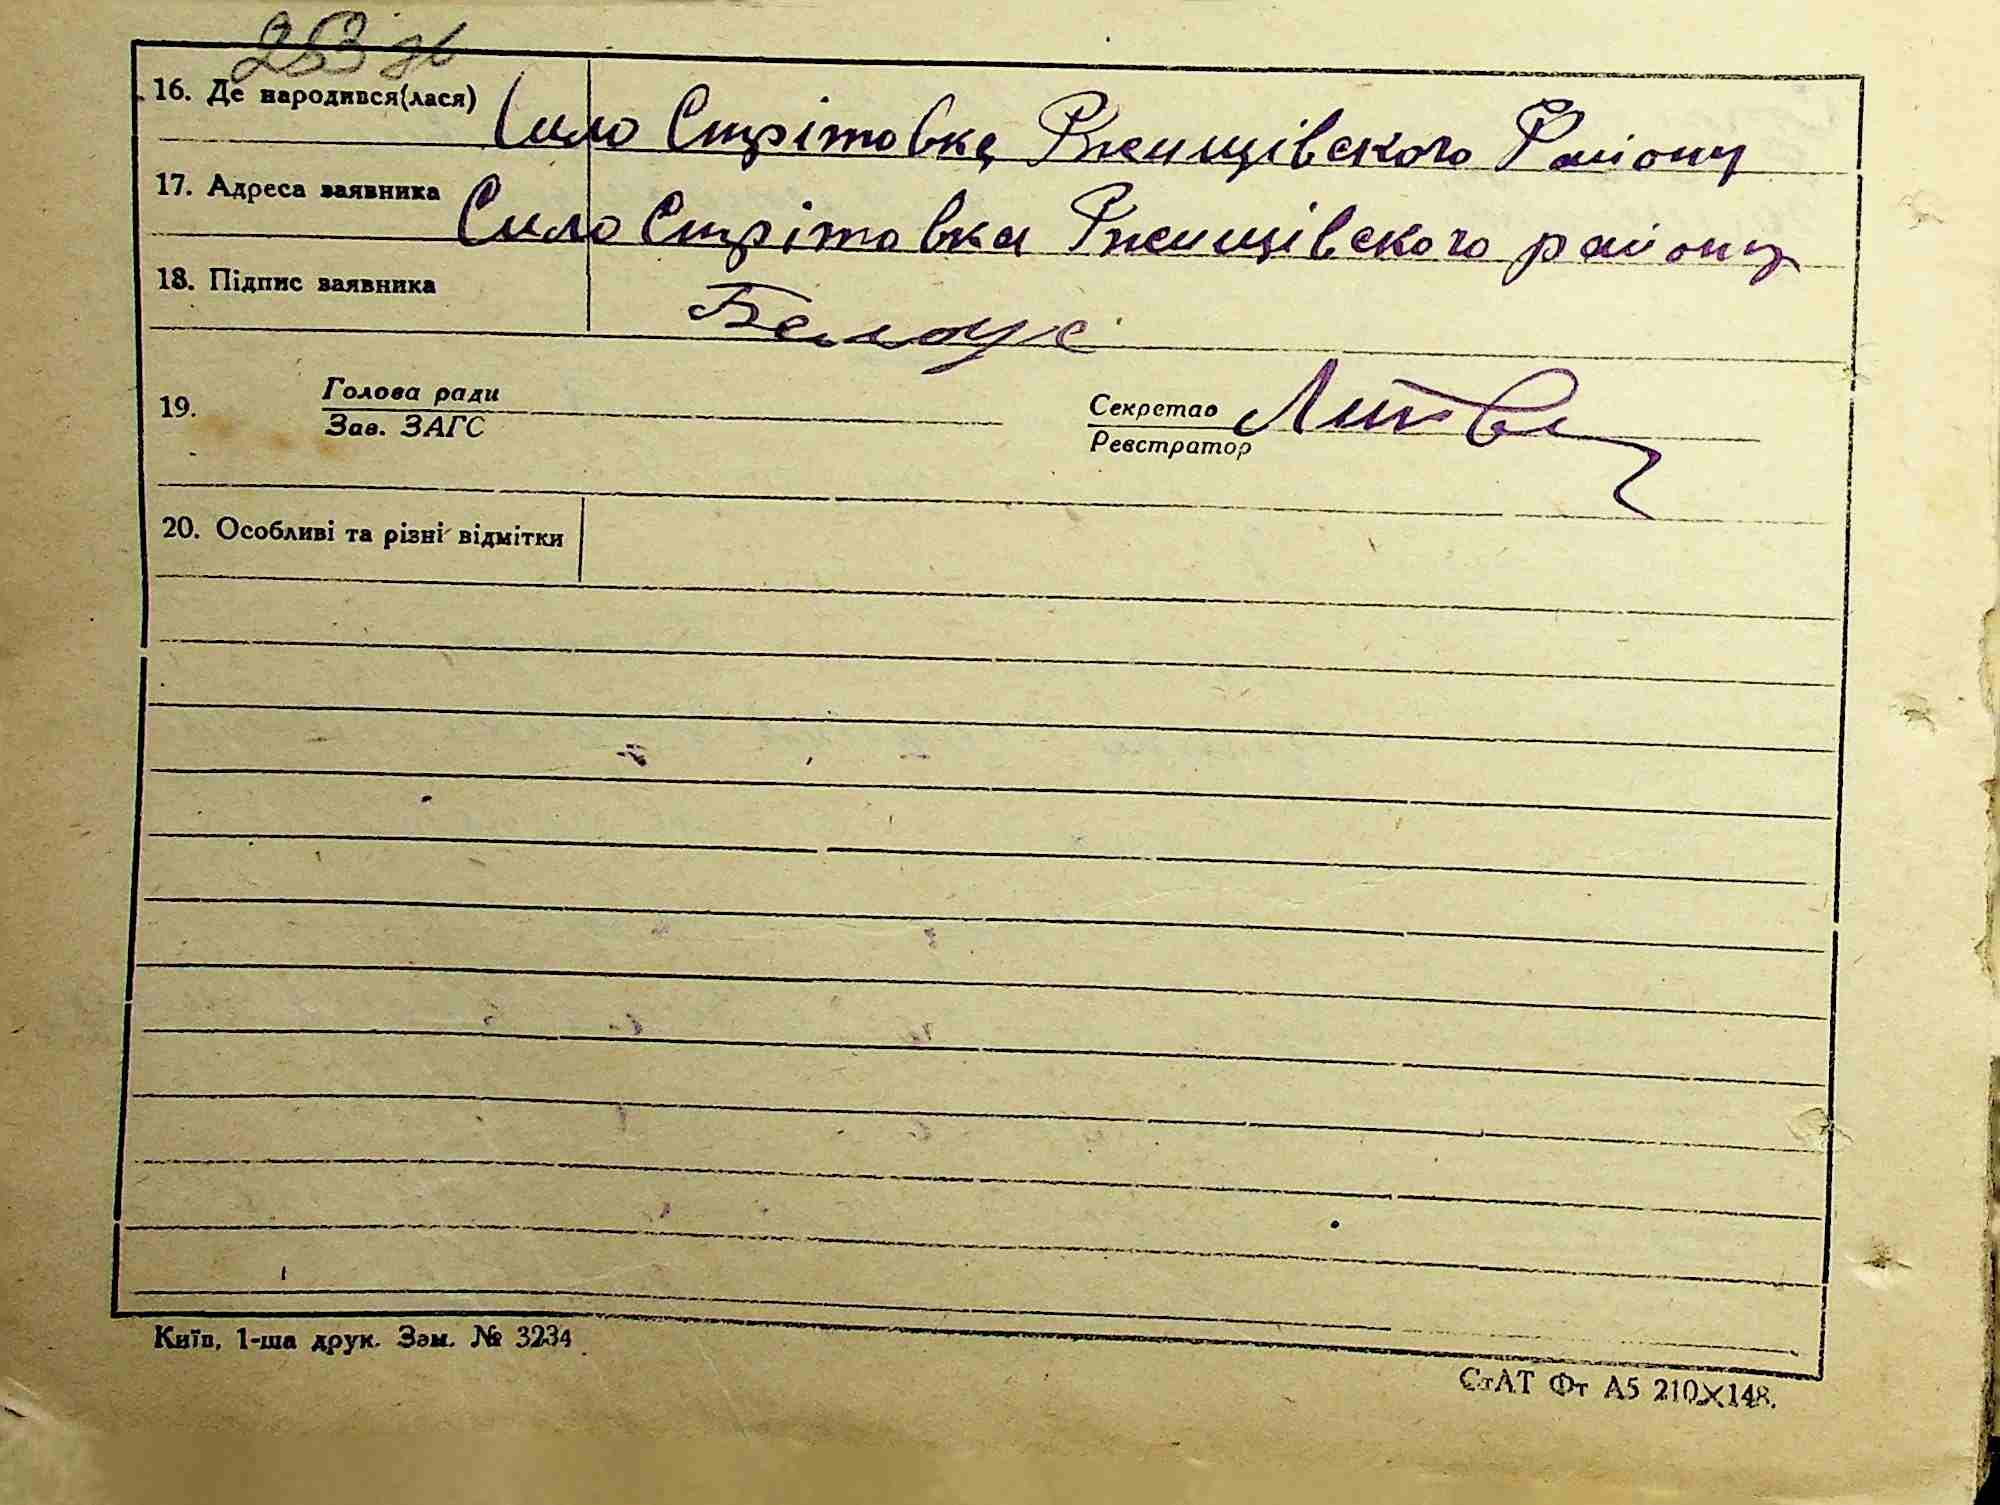 253 зв
16. Де народився(лася) Село Стрітовка Ржищівского Району
17. Адреса заявника Село Стрітовка Ржищівского району
18. Підпис заявника Белоус
19. Голова ради
Зав. ЗАГС
Секретар Литвин
Реєстратор
20. Особливі та різні відмітки
Київ, 1-ша друк. Зам. № 3234
СтАТ Фт А5 210×148.